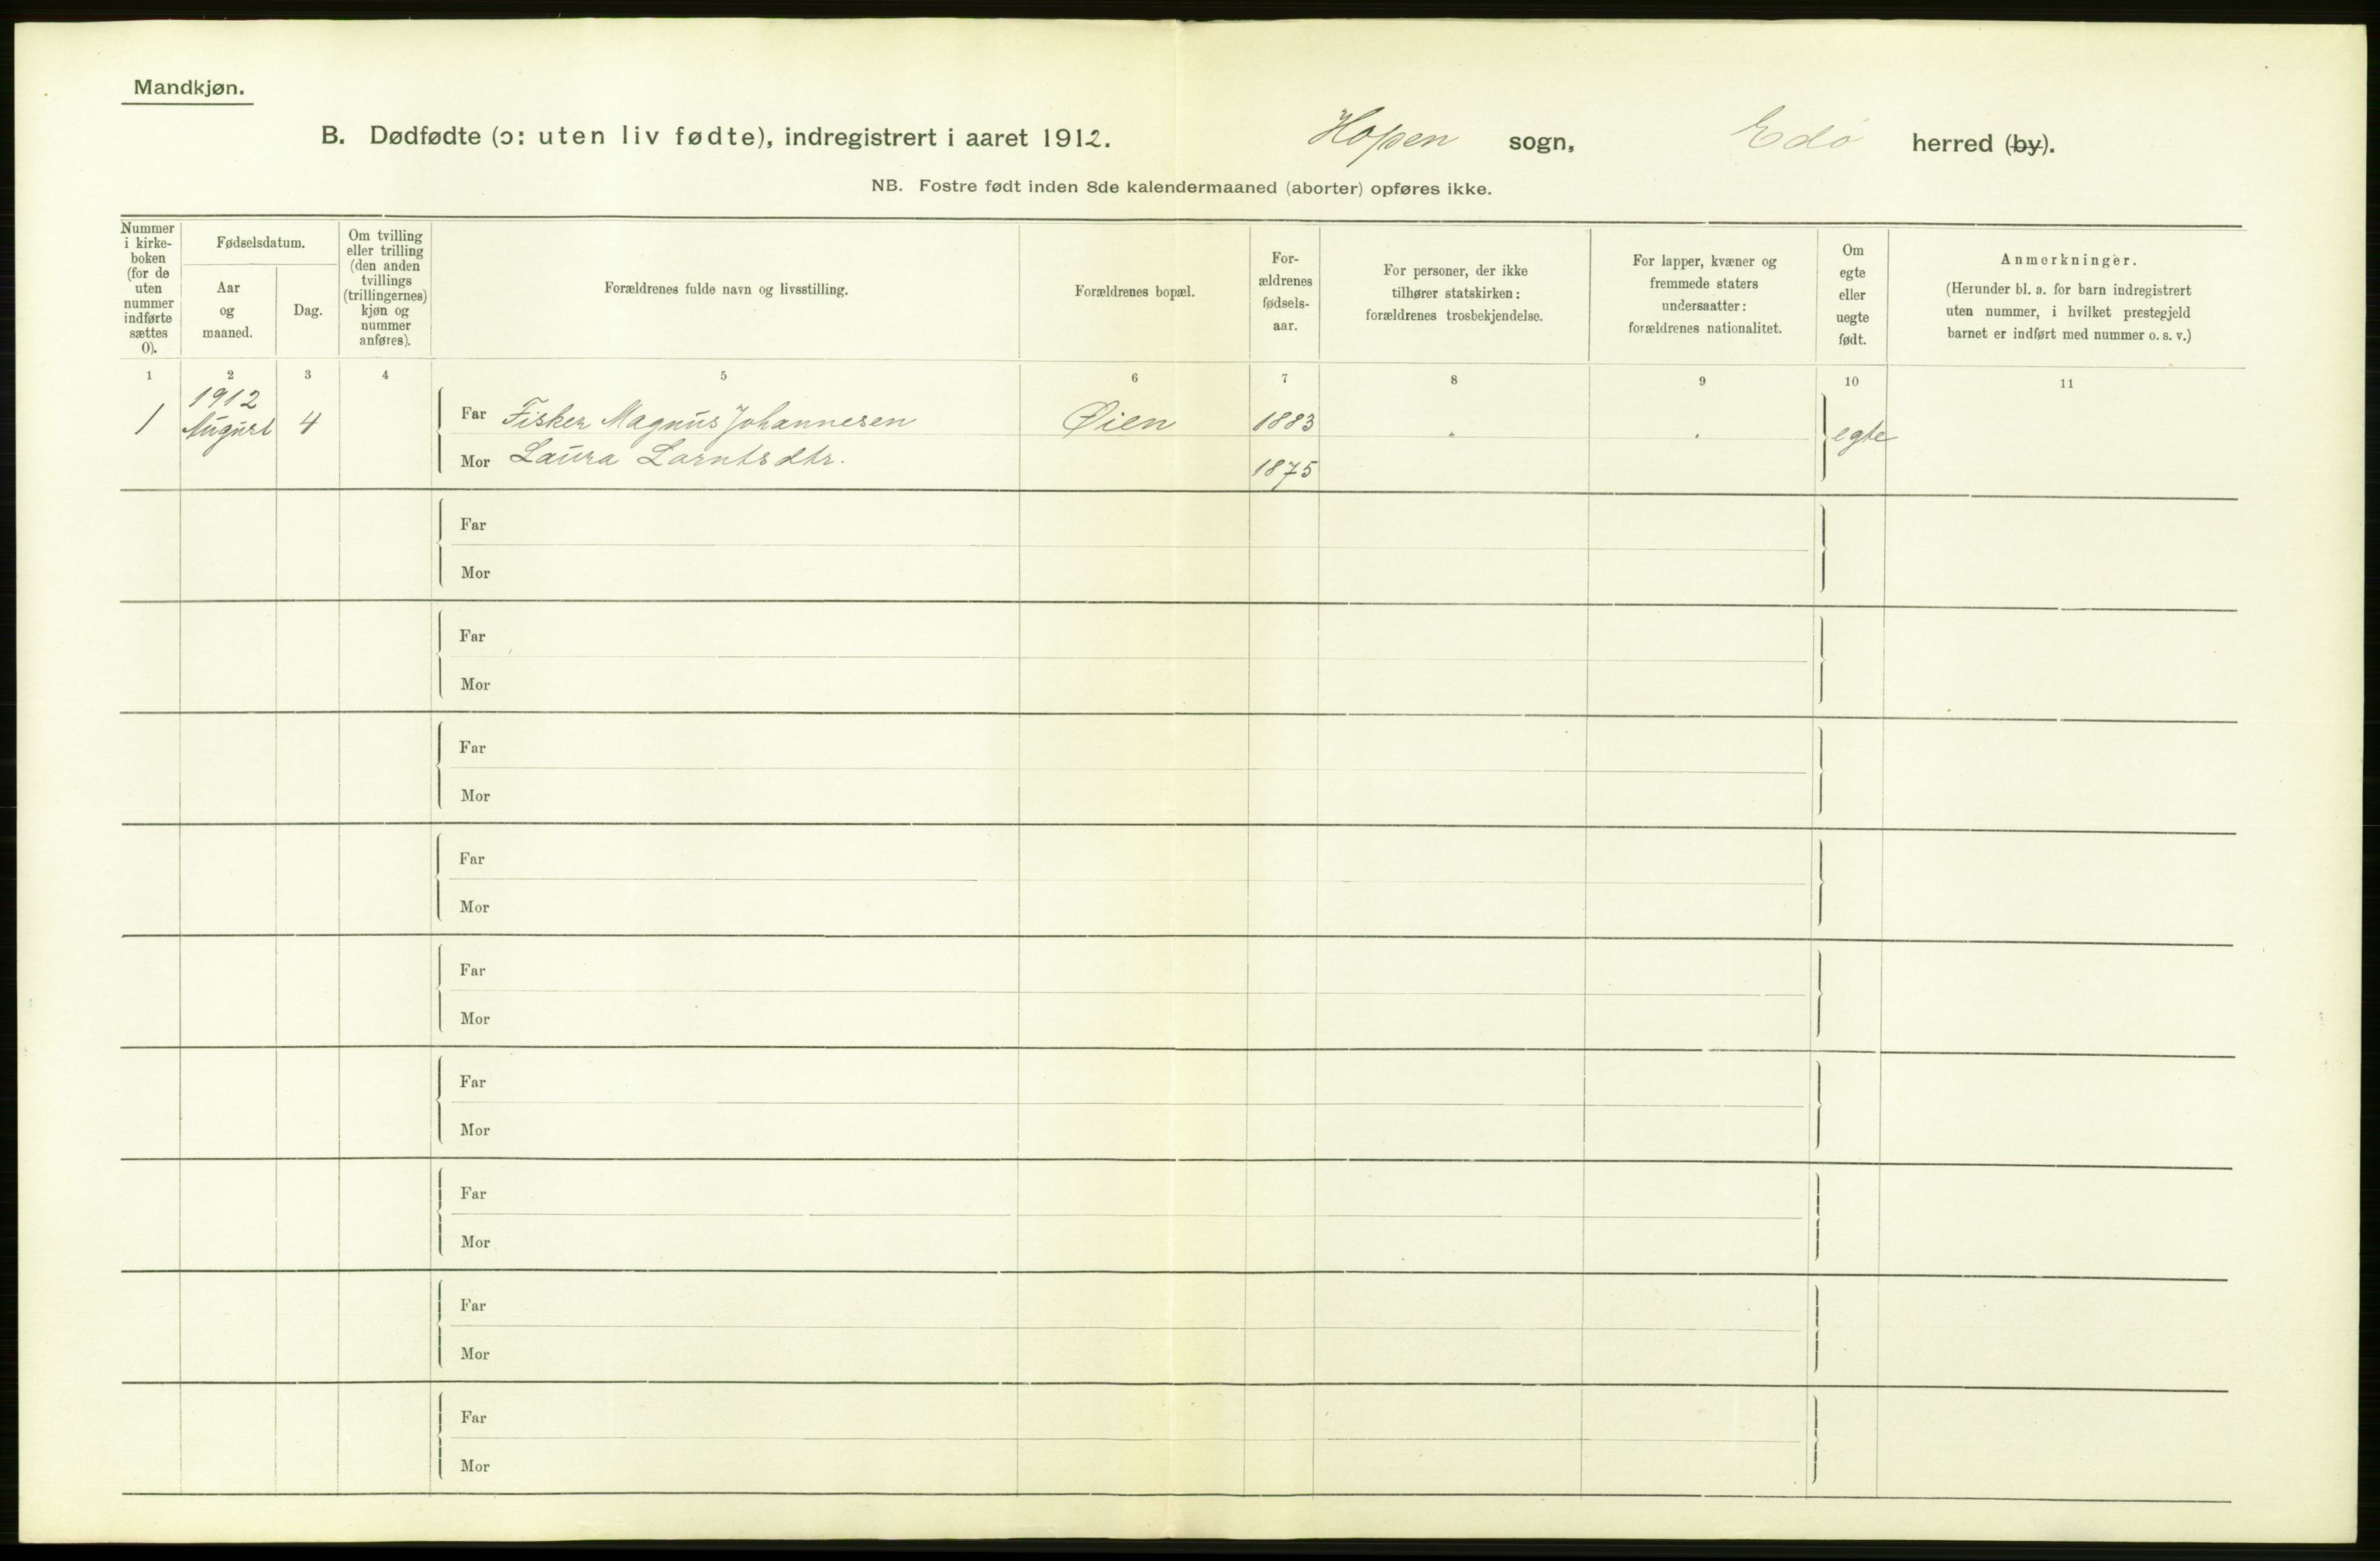 Mandkjøn.
B. Dødfødte (ɔ: uten liv fødte), indregistrert i aaret 1912. Hopen sogn, Edö herred (by).
NB. Fostre født inden 8de kalendermaaned (aborter) opføres ikke.
Nummer
i kirke-
boken
(for de
uten
nummer
indførte
sættes
0).
Fødselsdatum.
Aar
og
maaned.
Dag.
Om tvilling
eller trilling
(den anden
tvillings
(trillingernes)
kjøn og
nummer
anføres).
Forældrenes fulde navn og livsstilling.
Forældrenes bopæl.
For-
ældrenes
fødsels-
aar.
For personer, der ikke
tilhører statskirken:
forældrenes trosbekjendelse.
For lapper, kvæner og
fremmede staters
undersaatter:
forældrenes nationalitet.
Om
egte
eller
uegte
født.
Anmerkninger.
(Herunder bl. a. for barn indregistrert
uten nummer, i hvilket prestegjeld
barnet er indført med nummer o. s. v.)
1 2 3 4 5 6 7 8 9 10 11
1912
1 August 4 Far Fisker Magnus Johannesen Øien 1883 egte
Mor Laura Larntsdtr. 1875
Far
Mor
Far
Mor
Far
Mor
Far
Mor
Far
Mor
Far
Mor
Far
Mor
Far
Mor
Far
Mor